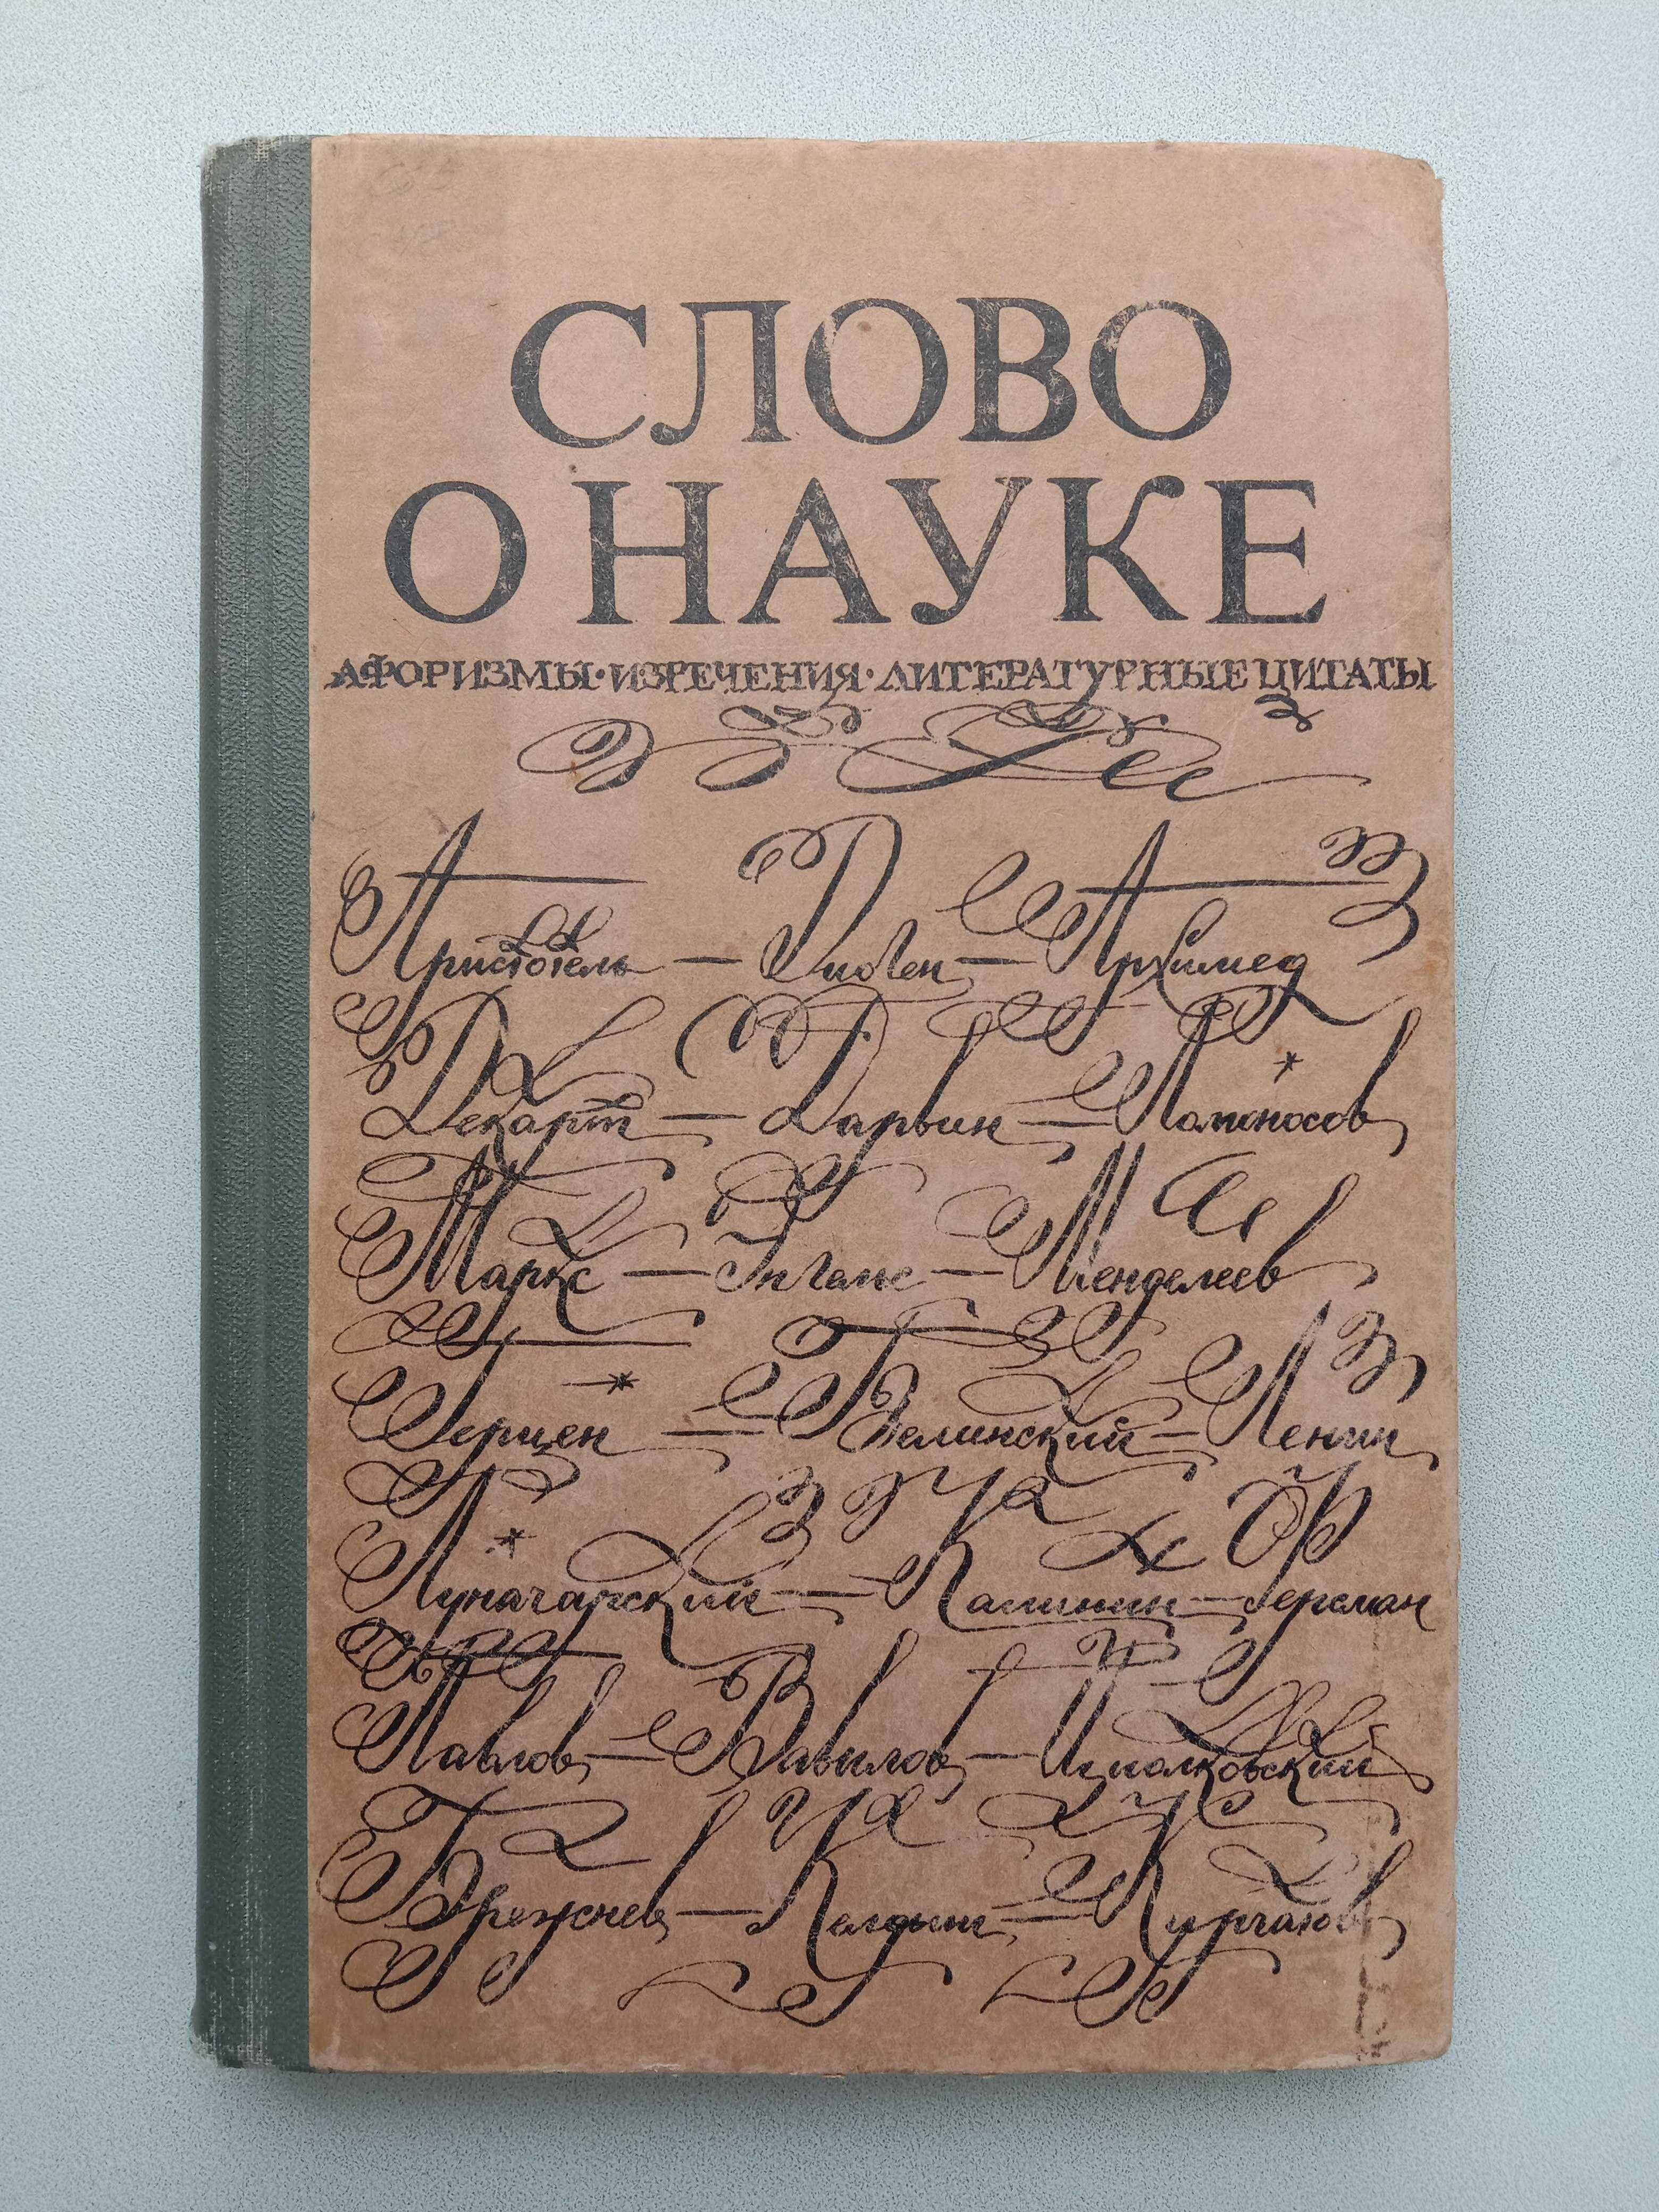 СЛОВО
О НАУКЕ
АФОРИЗМЫ·ИЗРЕЧЕНИЯ·ЛИТЕРАТУРНЫЕ ЦИТАТЫ
Аристотель — Диоген — Архимед
Декарт — Дарвин — Ломоносов
Маркс — Энгельс — Менделеев
Герцен — Белинский — Ленин
Луначарский — Калинин — Ферсман
Павлов — Вавилов — Циолковский
Брежнев — Келдыш — Курчатов